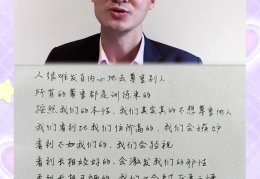 人很难发自内心地去尊重别人，
所有的尊重都是训练来的
按照我们的本性，我们其实真的不想尊重他人
我们看到比我们位阶高的，我们会嫉妒
看到不如我们的，我们会轻视
看到长相姣好的，会激发我们的邪性
看到长相